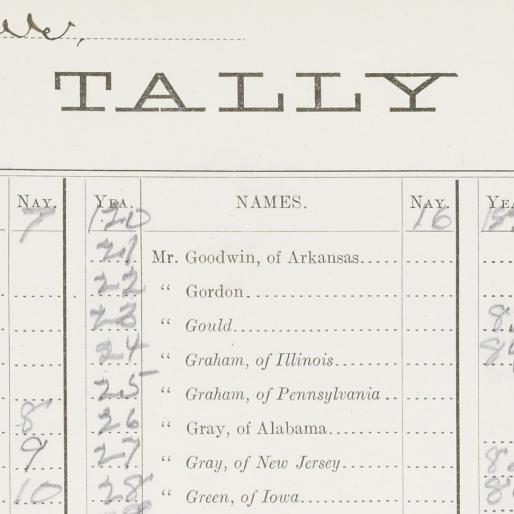 TALLY
NAY. YEA. NAMES. NAY. YEA
7 120 16
21 Mr. Goodwin, of Arkansas
22 " Gordon
23 " Gould
24 " Graham, of Illinois
25 " Graham, of Pennsylvania
8 26 " Gray, of Alabama
9 27 " Gray, of New Jersey
10 28 " Green, of Iowa